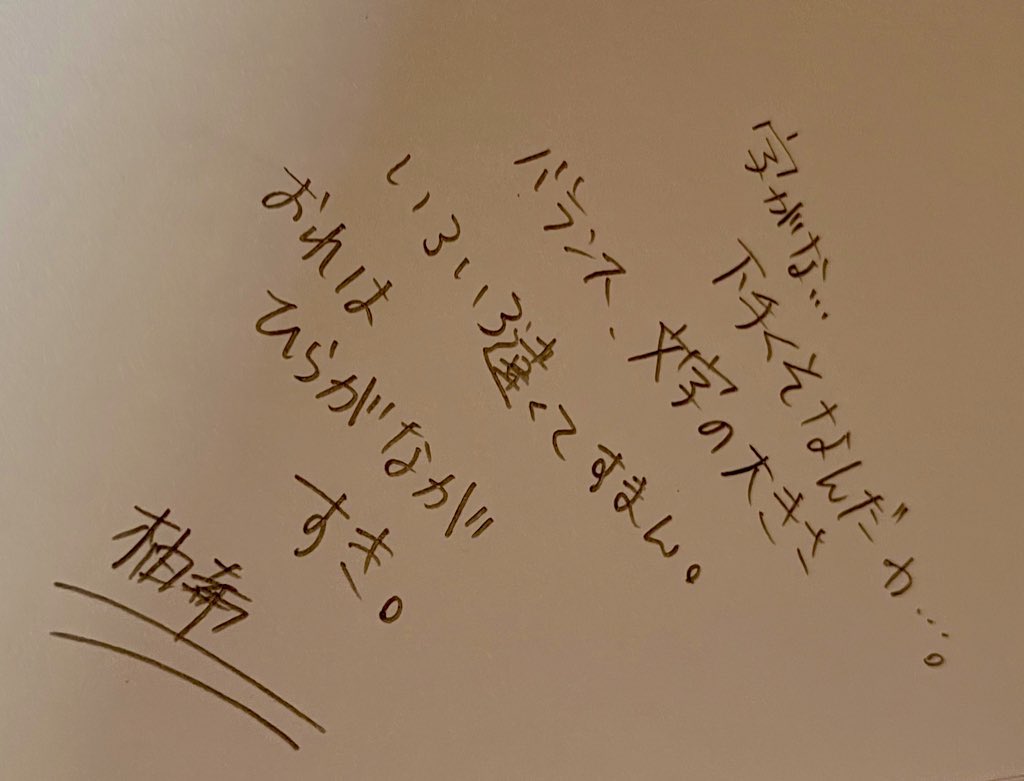 字がな…
下手くそなんだわ…。
バランス、文字の大きさ
いろいろ違くてすまん。
おれは
ひらがなが
すき。
柚希